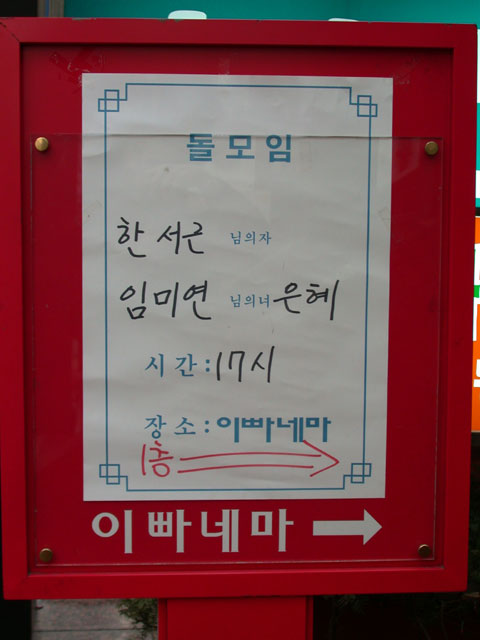 돌모임
한서근 님의자
임미연 님의녀 은혜
시간: 17시
장소: 이빠네마
1층
이빠네마